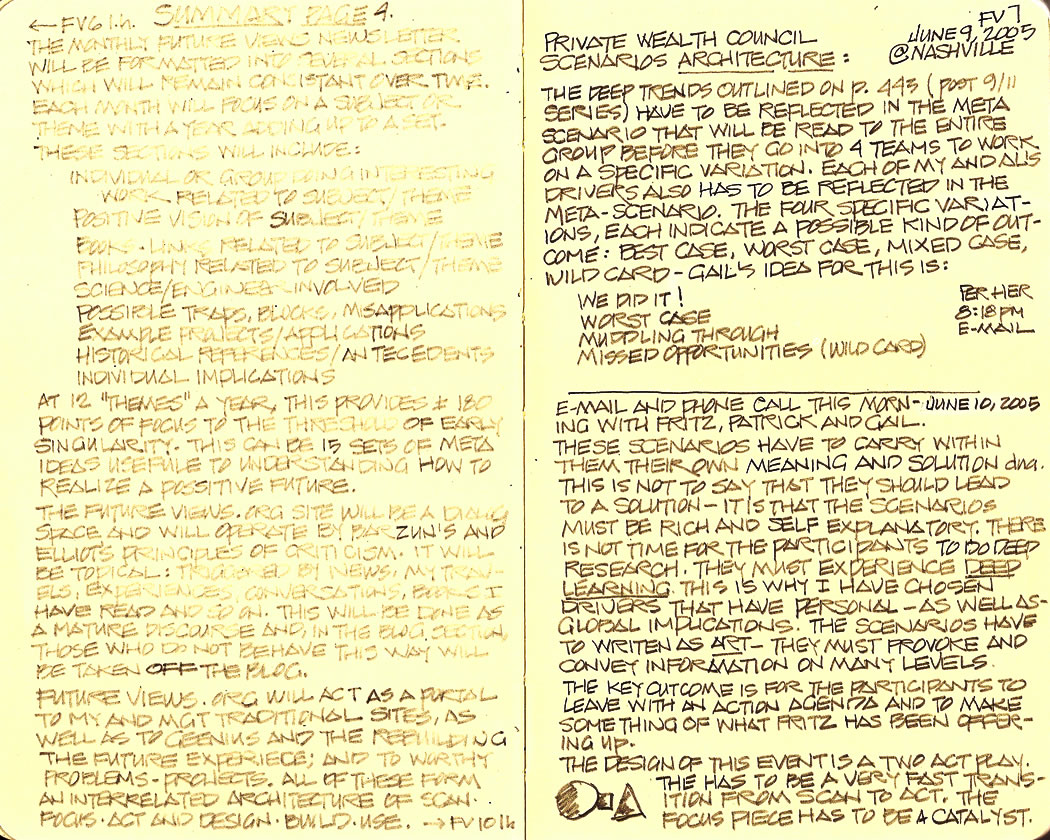 ← FV6 1.h. SUMMARY PAGE 4.
THE MONTHLY FUTURE VIEWS NEWSLETTER
WILL BE FORMATTED INTO SEVERAL SECTIONS
WHICH WILL REMAIN CONCISTANT OVER TIME.
EACH MONTH WILL FOCUS ON A SUBJECT OR
THEME WITH A YEAR ADDING UP TO A SET.
THESE SECTIONS WILL INCLUDE:
INDIVIDUAL OR GROUP DOING INTERESTING
WORK RELATED TO SUBJECT/THEME
POSITIVE VISION OF SUBJECT/THEME
BOOKS · LINKS RELATED TO SUBJECT/THEME
PHILOSOPHY RELATED TO SUBJECT/THEME
SCIENCE/ENGINEER INVOLVED
POSSIBLE TRAPS, BLOCKS, MISAPPLICATIONS
EXAMPLE PROJECTS/APPLICATIONS
HISTORICAL REFERENCES/ANTECEDENTS
INDIVIDUAL IMPLICATIONS
AT 12 "THEMES" A YEAR, THIS PROVIDES ± 180
POINTS OF FOCUS TO THE THRESHOLD OF EARLY
SINGULARITY. THIS CAN BE 15 SETS OF META
IDEAS USEFULE TO UNDERSTANDING HOW TO
REALIZE A POSSITIVE FUTURE.
THE FUTURE VIEWS.ORG SITE WILL BE A DIALOG
SPACE AND WILL OPERATE BY BARZUN'S AND
ELLIOT'S PRINCIPLES OF CRITICISM. IT WILL
BE TOPICAL: TRIGGERED BY NEWS, MY TRAV-
ELS, EXPERIENCES, CONVERSATIONS, BOOKS I
HAVE READ AND SO ON. THIS WILL BE DONE AS
A MATURE DISCOURSE AND, IN THE BLOG SECTION,
THOSE WHO DO NOT BEHAVE THIS WAY WILL
BE TAKEN OFF THE BLOG.
FUTURE VIEWS.ORG WILL ACT AS A PORTAL
TO MY AND MGT TRADITIONAL SITES, AS
WELL AS TO GEENIUS AND THE REBUILDING
THE FUTURE EXPERIECE; AND TO WORTHY
PROBLEMS - PROJECTS. ALL OF THESE FORM
AN INTERRELATED ARCHITECTURE OF SCAN ·
FOCUS · ACT AND DESIGN · BUILD · USE. → FV 10 1h
FV7
JUNE 9, 2005
@NASHVILLE
PRIVATE WEALTH COUNCIL
SCENARIOS ARCHITECTURE:
THE DEEP TRENDS OUTLINED ON p. 443 (post 9/11
SERIES) HAVE TO BE REFLECTED IN THE META
SCENARIO THAT WILL BE READ TO THE ENTIRE
GROUP BEFORE THEY GO INTO 4 TEAMS TO WORK
ON A SPECIFIC VARIATION. EACH OF MY AND AL'S
DRIVERS ALSO HAS TO BE REFLECTED IN THE
META-SCENARIO. THE FOUR SPECIFIC VARIAT-
IONS, EACH INDICATE A POSSIBLE KIND OF OUT-
COME: BEST CASE, WORST CASE, MIXED CASE,
WILD CARD - GAIL'S IDEA FOR THIS IS:
WE DID IT!
WORST CASE
MUDDLING THROUGH
MISSED OPPORTUNITIES (WILD CARD)
PER HER
8:18 PM
E-MAIL
E-MAIL AND PHONE CALL THIS MORN- JUNE 10, 2005
ING WITH FRITZ, PATRICK AND GAIL.
THESE SCENARIOS HAVE TO CARRY WITHIN
THEM THEIR OWN MEANING AND SOLUTION dna.
THIS IS NOT TO SAY THAT THEY SHOULD LEAD
TO A SOLUTION - IT IS THAT THE SCENARIOS
MUST BE RICH AND SELF EXPLANATORY. THERE
IS NOT TIME FOR THE PARTICIPANTS TO DO DEEP
RESEARCH. THEY MUST EXPERIENCE DEEP
LEARNING. THIS IS WHY I HAVE CHOSEN
DRIVERS THAT HAVE PERSONAL - AS WELL AS -
GLOBAL IMPLICATIONS. THE SCENARIOS HAVE
TO WRITEN AS ART - THEY MUST PROVOKE AND
CONVEY INFORMATION ON MANY LEVELS.
THE KEY OUTCOME IS FOR THE PARTICIPANTS TO
LEAVE WITH AN ACTION AGENDA AND TO MAKE
SOMETHING OF WHAT FRITZ HAS BEEN OFFER-
ING UP.
THE DESIGN OF THIS EVENT IS A TWO ACT PLAY.
THE HAS TO BE A VERY FAST TRANS-
ITION FROM SCAN TO ACT. THE
FOCUS PIECE HAS TO BE A CATALYST.